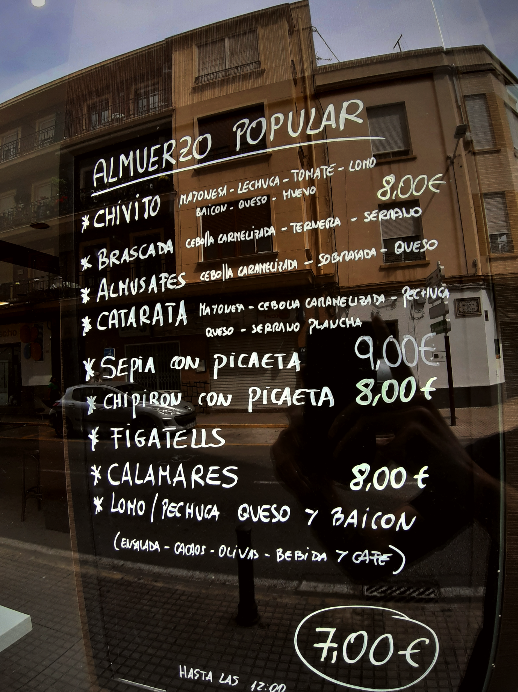 ALMUERZO POPULAR
* CHIVITO MAYONESA - LECHUGA - TOMATE - LOMO
BAICON - QUESO - HUEVO 8,00€
* BRASCADA CEBOLLA CARMELIZADA - TERNERA - SERRANO
* ALMUSAFES CEBOLLA CARAMELIZADA - SOBRASADA - QUESO
* CATARATA MAYONESA - CEBOLLA CARAMELIZADA - PECHUGA
QUESO - SERRANO PLANCHA
* SEPIA CON PICAETA 9,00€
* CHIPIRON CON PICAETA 8,00€
* FIGATELLS
* CALAMARES 8,00€
* LOMO/PECHUGA QUESO Y BAICON
(ENSALADA - CACAOS - OLIVAS - BEBIDA Y CAFE)
7,00€
HASTA LAS 12:00